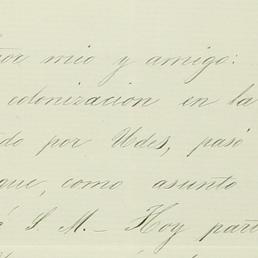 ñor mio y amigo:
colonizacion en la
do por Udes, pasó
que, como asunto
á S. M. - Hoy pare